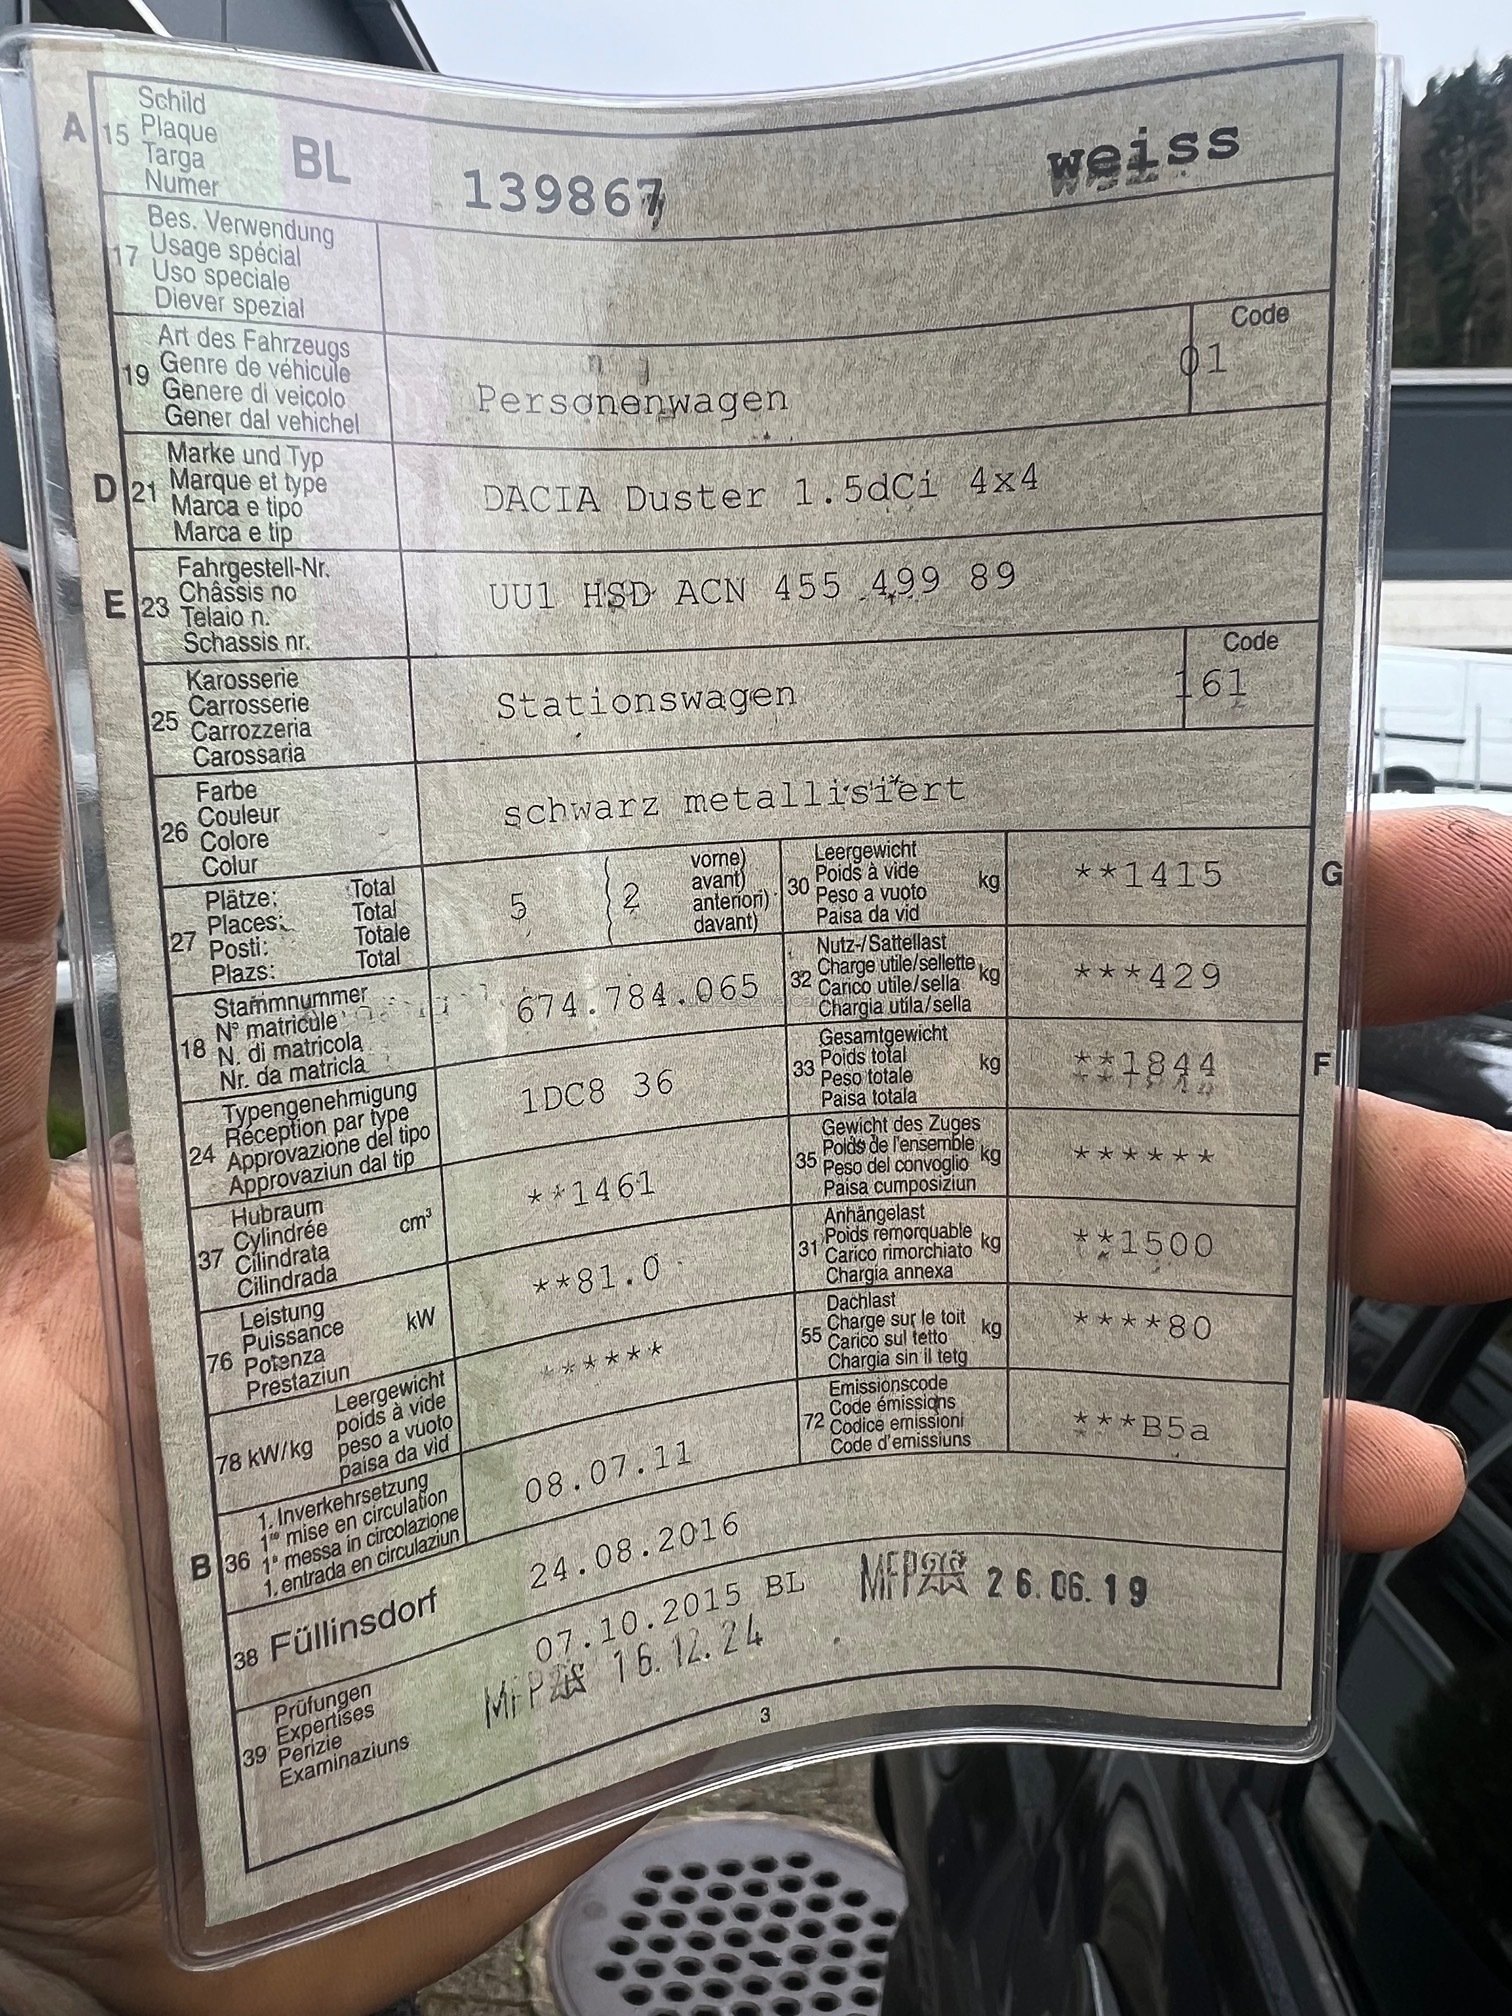 A 15 Schild
Plaque
Targa
Numer
BL 139867 weiss
17 Bes. Verwendung
Usage spécial
Uso speciale
Diever spezial
19 Art des Fahrzeugs
Genre de véhicule
Genere di veicolo
Gener dal vehichel
Personenwagen
Code
01
D 21 Marke und Typ
Marque et type
Marca e tipo
Marca e tip
DACIA Duster 1.5dCi 4x4
E 23 Fahrgestell-Nr.
Châssis no
Telaio n.
Schassis nr.
UU1 HSD ACN 455 499 89
25 Karosserie
Carrosserie
Carrozzeria
Carossaria
Stationswagen
Code
161
26 Farbe
Couleur
Colore
Colur
schwarz metallisiert
27 Plätze: Total
Places: Total
Posti: Totale
Plazs: Total
5 ( 2 vorne)
avant)
anteriori)
davant)
30 Leergewicht
Poids à vide
Peso a vuoto
Paisa da vid
kg
**1415
G
18 Stammnummer
N° matricule
N. di matricola
Nr. da matricla
674.784.065
32 Nutz-/Sattellast
Charge utile/sellette
Carico utile/sella
Chargia utila/sella
kg
***429
24 Typengenehmigung
Réception par type
Approvazione del tipo
Approvaziun dal tip
1DC8 36
33 Gesamtgewicht
Poids total
Peso totale
Paisa totala
kg
**1844
F
37 Hubraum
Cylindrée
Cilindrata
Cilindrada
cm³
**1461
35 Gewicht des Zuges
Poids de l'ensemble
Peso del convoglio
Paisa cumposiziun
kg
******
76 Leistung
Puissance
Potenza
Prestaziun
kW
**81.0
31 Anhängelast
Poids remorquable
Carico rimorchiato
Chargia annexa
kg
**1500
78 kW/kg Leergewicht
poids à vide
peso a vuoto
paisa da vid
******
55 Dachlast
Charge sur le toit
Carico sul tetto
Chargia sin il tetg
kg
****80
B 36 1. Inverkehrsetzung
1re mise en circulation
1a messa in circolazione
1. entrada en circulaziun
08.07.11
72 Emissionscode
Code émissions
Codice emissioni
Code d'emissiuns
***B5a
38 Füllinsdorf
24.08.2016
39 Prüfungen
Expertises
Perizie
Examinaziuns
07.10.2015 BL
MFP 26.06.19
MFP 16.12.24
3